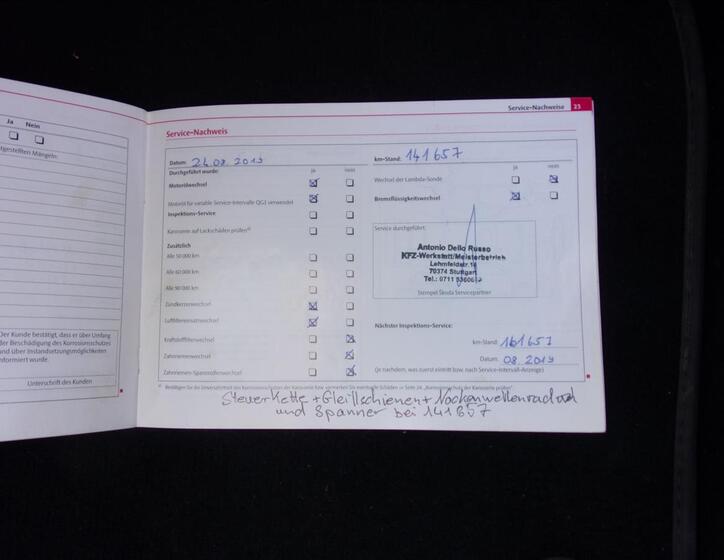 Ja Nein
Service-Nachweise 23
Service-Nachweis
Datum: 24.08.2019 km-Stand: 141657
Durchgeführt wurde: ja nein ja nein
Motorölwechsel
Wechsel der Lambda-Sonde
Motoröl für variable Service-Intervalle QG1 verwendet
Bremsflüssigkeitswechsel
Inspektions-Service
Karosserie auf Lackschäden prüfen
Service durchgeführt:
Zusätzlich
Alle 30 000 km
Alle 60 000 km
Alle 90 000 km
Antonio Dello Russo
KFZ-Werkstatt/Meisterbetrieb
Lehmfeldstr.
70374 Stuttgart
Tel.: 0711
Stempel Škoda Servicepartner
Zündkerzenwechsel
Luftfiltereinsatzwechsel
Nächster Inspektions-Service:
Kraftstofffilterwechsel
km-Stand: 161657
Zahnriemenwechsel
Datum: 08.2019
Zahnriemen-Spannrollenwechsel
(je nachdem, was zuerst eintritt bzw. nach Service-Intervall-Anzeige)
Der Kunde bestätigt, dass er über Umfang
der Beschädigung des Korrosionsschutzes
und über Instandsetzungsmöglichkeiten
informiert wurde.
Unterschrift des Kunden
Steuerkette + Gleitschienen + Nockenwellenrad
und Spanner bei 141657